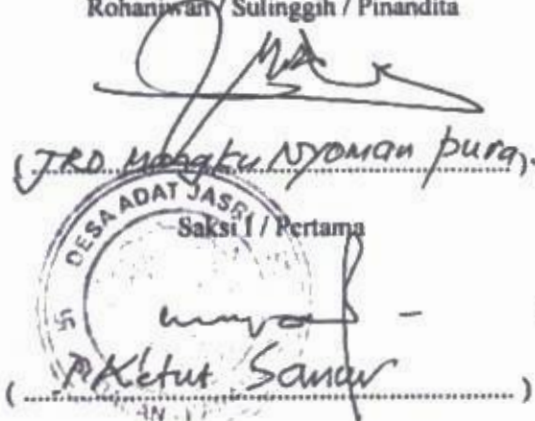 Rohaniwan / Sulinggih / Pinandita
(JRO Mangku Nyoman pura)
DESA ADAT JASRI
Saksi I / Pertama
( Ketut Sanur )